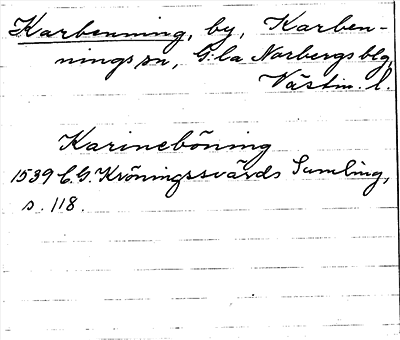 Karbenning, by, Karben-
nings sn, G:la Norbergs blg,
Västm. l.
Karineböning
1539 C.G. Kröningssvärds Samling,
s. 118.